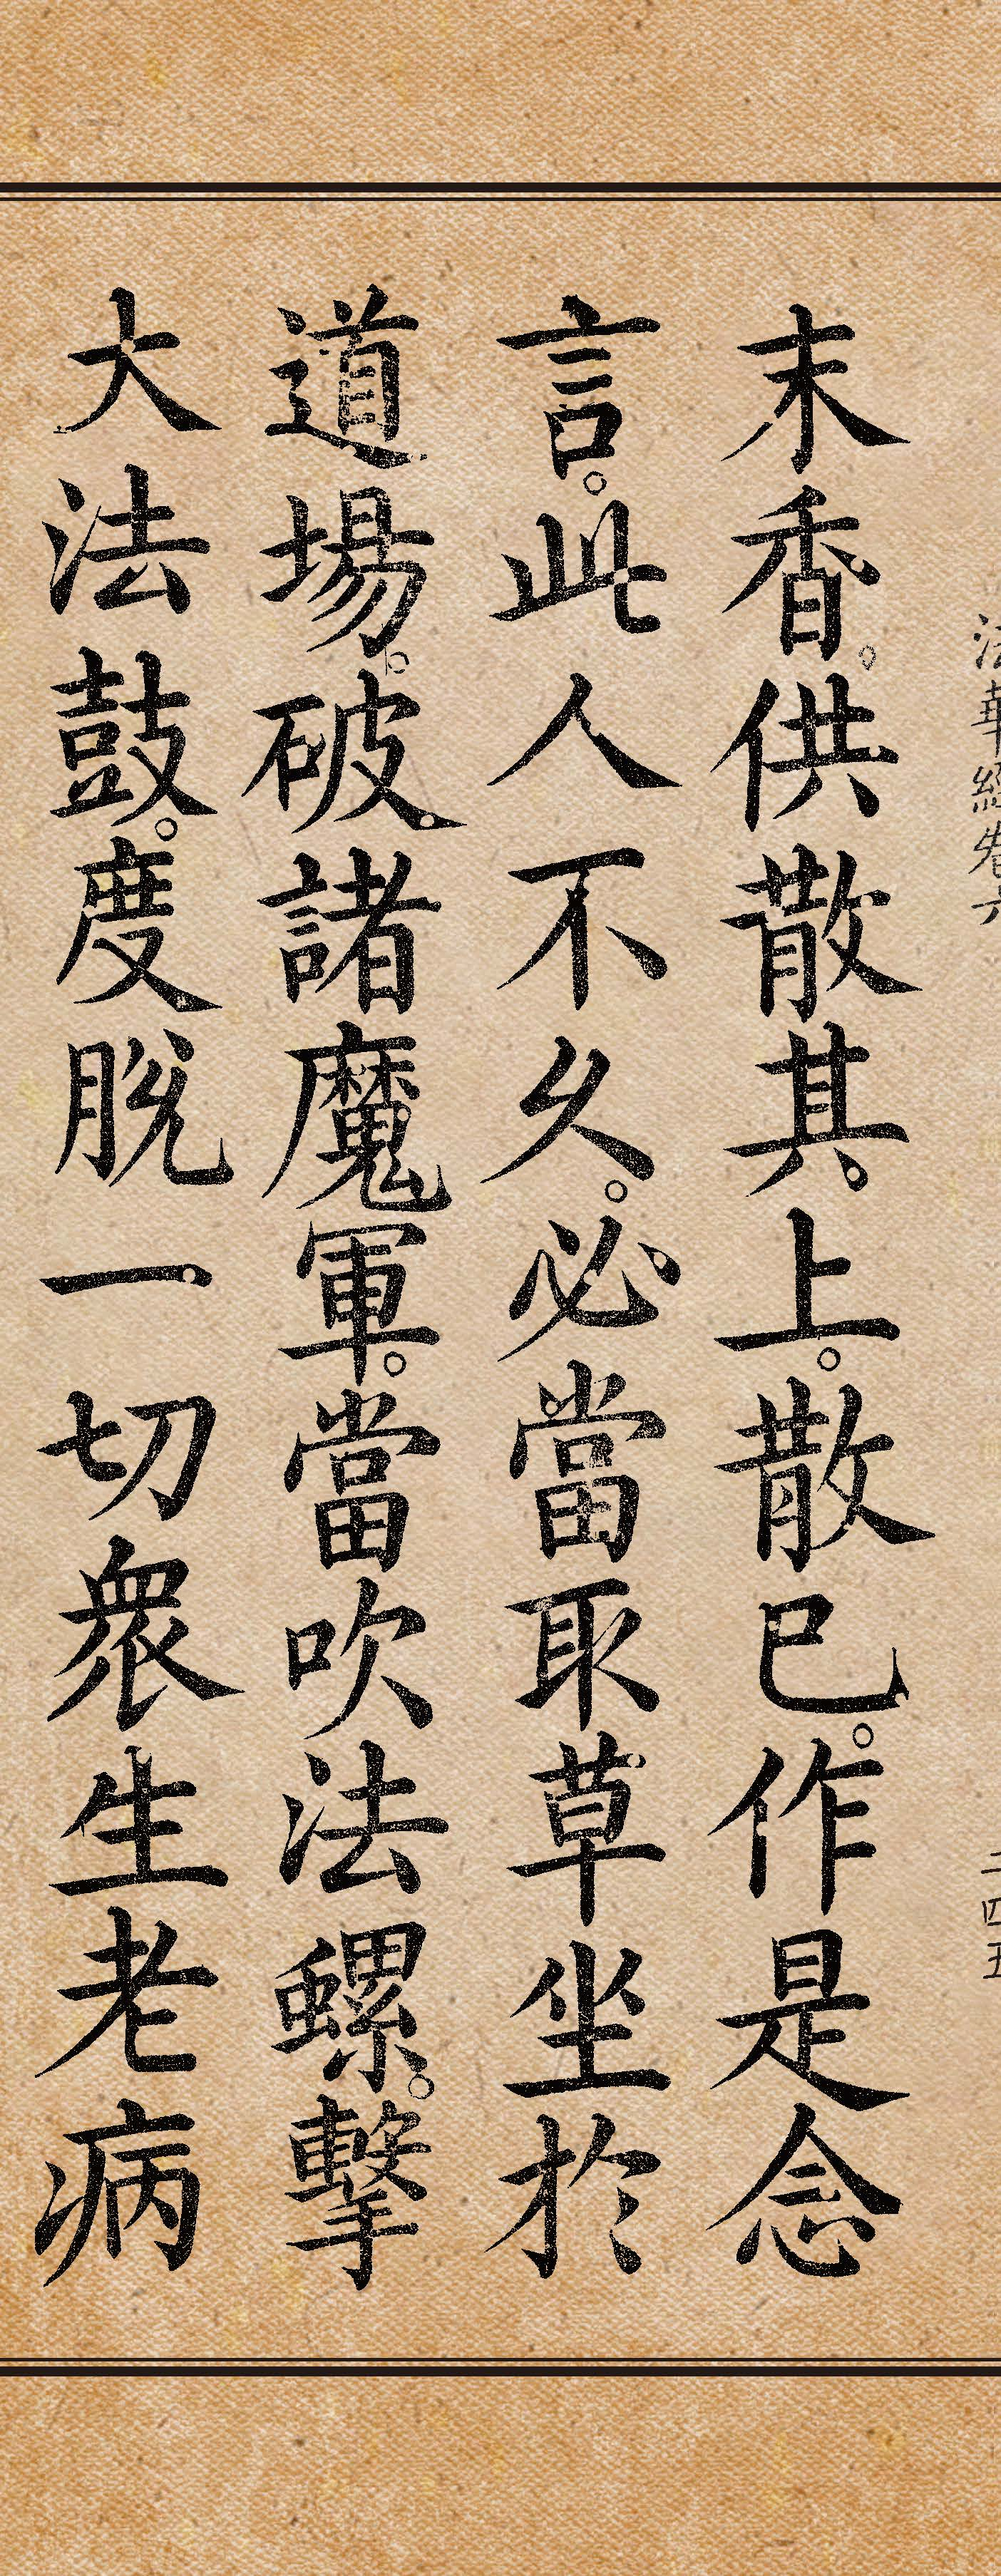 法華經卷六 二四五
末香。供散其上。散已。作是念
言。此人不久。必當取草坐於
道場。破諸魔軍。當吹法螺。擊
大法鼓。度脫一切衆生老病